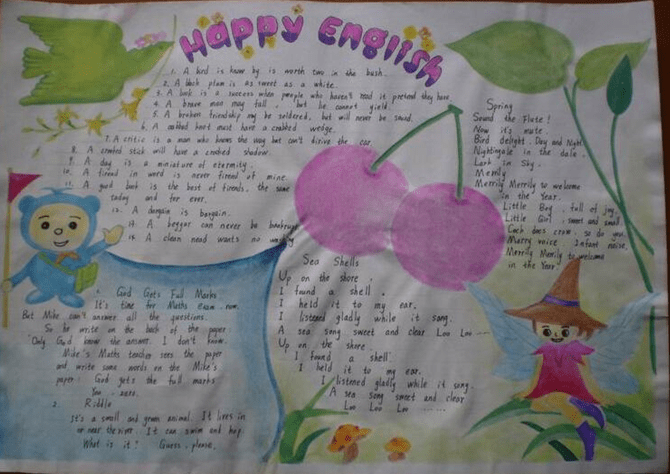 Happy English
1. A bird is know by is worth two in the bush.
2. A black plum is as sweet as a white.
3. A book is a success when people who haven't read it pretend they have.
4. A brave man may fall, but he cannot yield.
5. A broken friendship may be soldered, but will never be sound.
6. A crabbed knot must have a crabbed wedge.
7. A critic is a man who knows the way but can't drive the car.
8. A crooked stick will have a crooked shadow.
9. A day is a miniature of eternity.
10. A friend in word is never friend of mine.
11. A good book is the best of friends, the same
today and for ever.
12. A bargain is bargain.
13. A beggar can never be bankrupt
14. A clean hand wants no
1. God Gets Full Marks
It's time for Maths exam now.
But Mike can't answer all the questions.
So he write on the back of the paper
"Only God know the answer. I don't know.
Mike's Maths teacher sees the paper
and write some words on the Mike's
paper: God gets the full marks
You - zero.
2. Riddle
It's a small and green animal. It lives in
or near the river. It can swim and hop.
What is it? Guess, please.
Sea Shells
Up on the shore,
I found a shell.
I held it to my ear.
I listened gladly while it song.
A sea song sweet and clear Loo Loo
Up on the shore.
I found a shell.
I held it to my ear.
I listened gladly while it song.
A sea song sweet and clear
Loo Loo Loo ......
Spring
Sound the Flute!
Now it's mute.
Bird delight. Day and Night
Nightingale in the dale.
Lark in Sky.
Merrily
Merrily Merrily to welcome
in the Year.
Little Boy, full of joy.
Little Girl, sweet and small
Cock does crow, so do you.
Merry voice, Infant noise.
Merrily Merrily to welcome
in the Year.